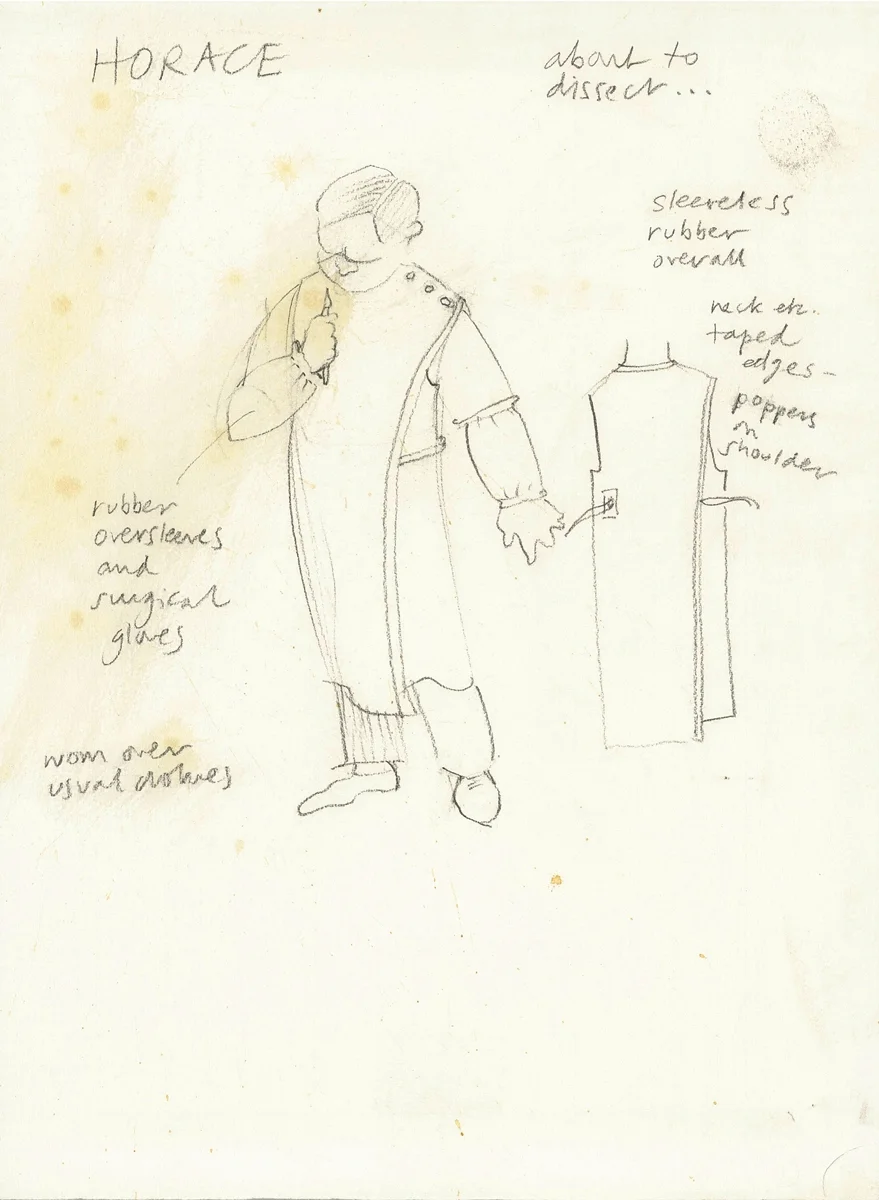 HORACE
about to
dissect...
sleeveless
rubber
overall
neck etc.
taped
edges -
poppers
on
shoulder
rubber
oversleeves
and
surgical
gloves
worn over
usual clothes